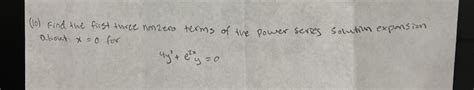 (10) Find the first three nonzero terms of the power series solution expansion
about x = 0 for
4y' + e^{2x}y = 0